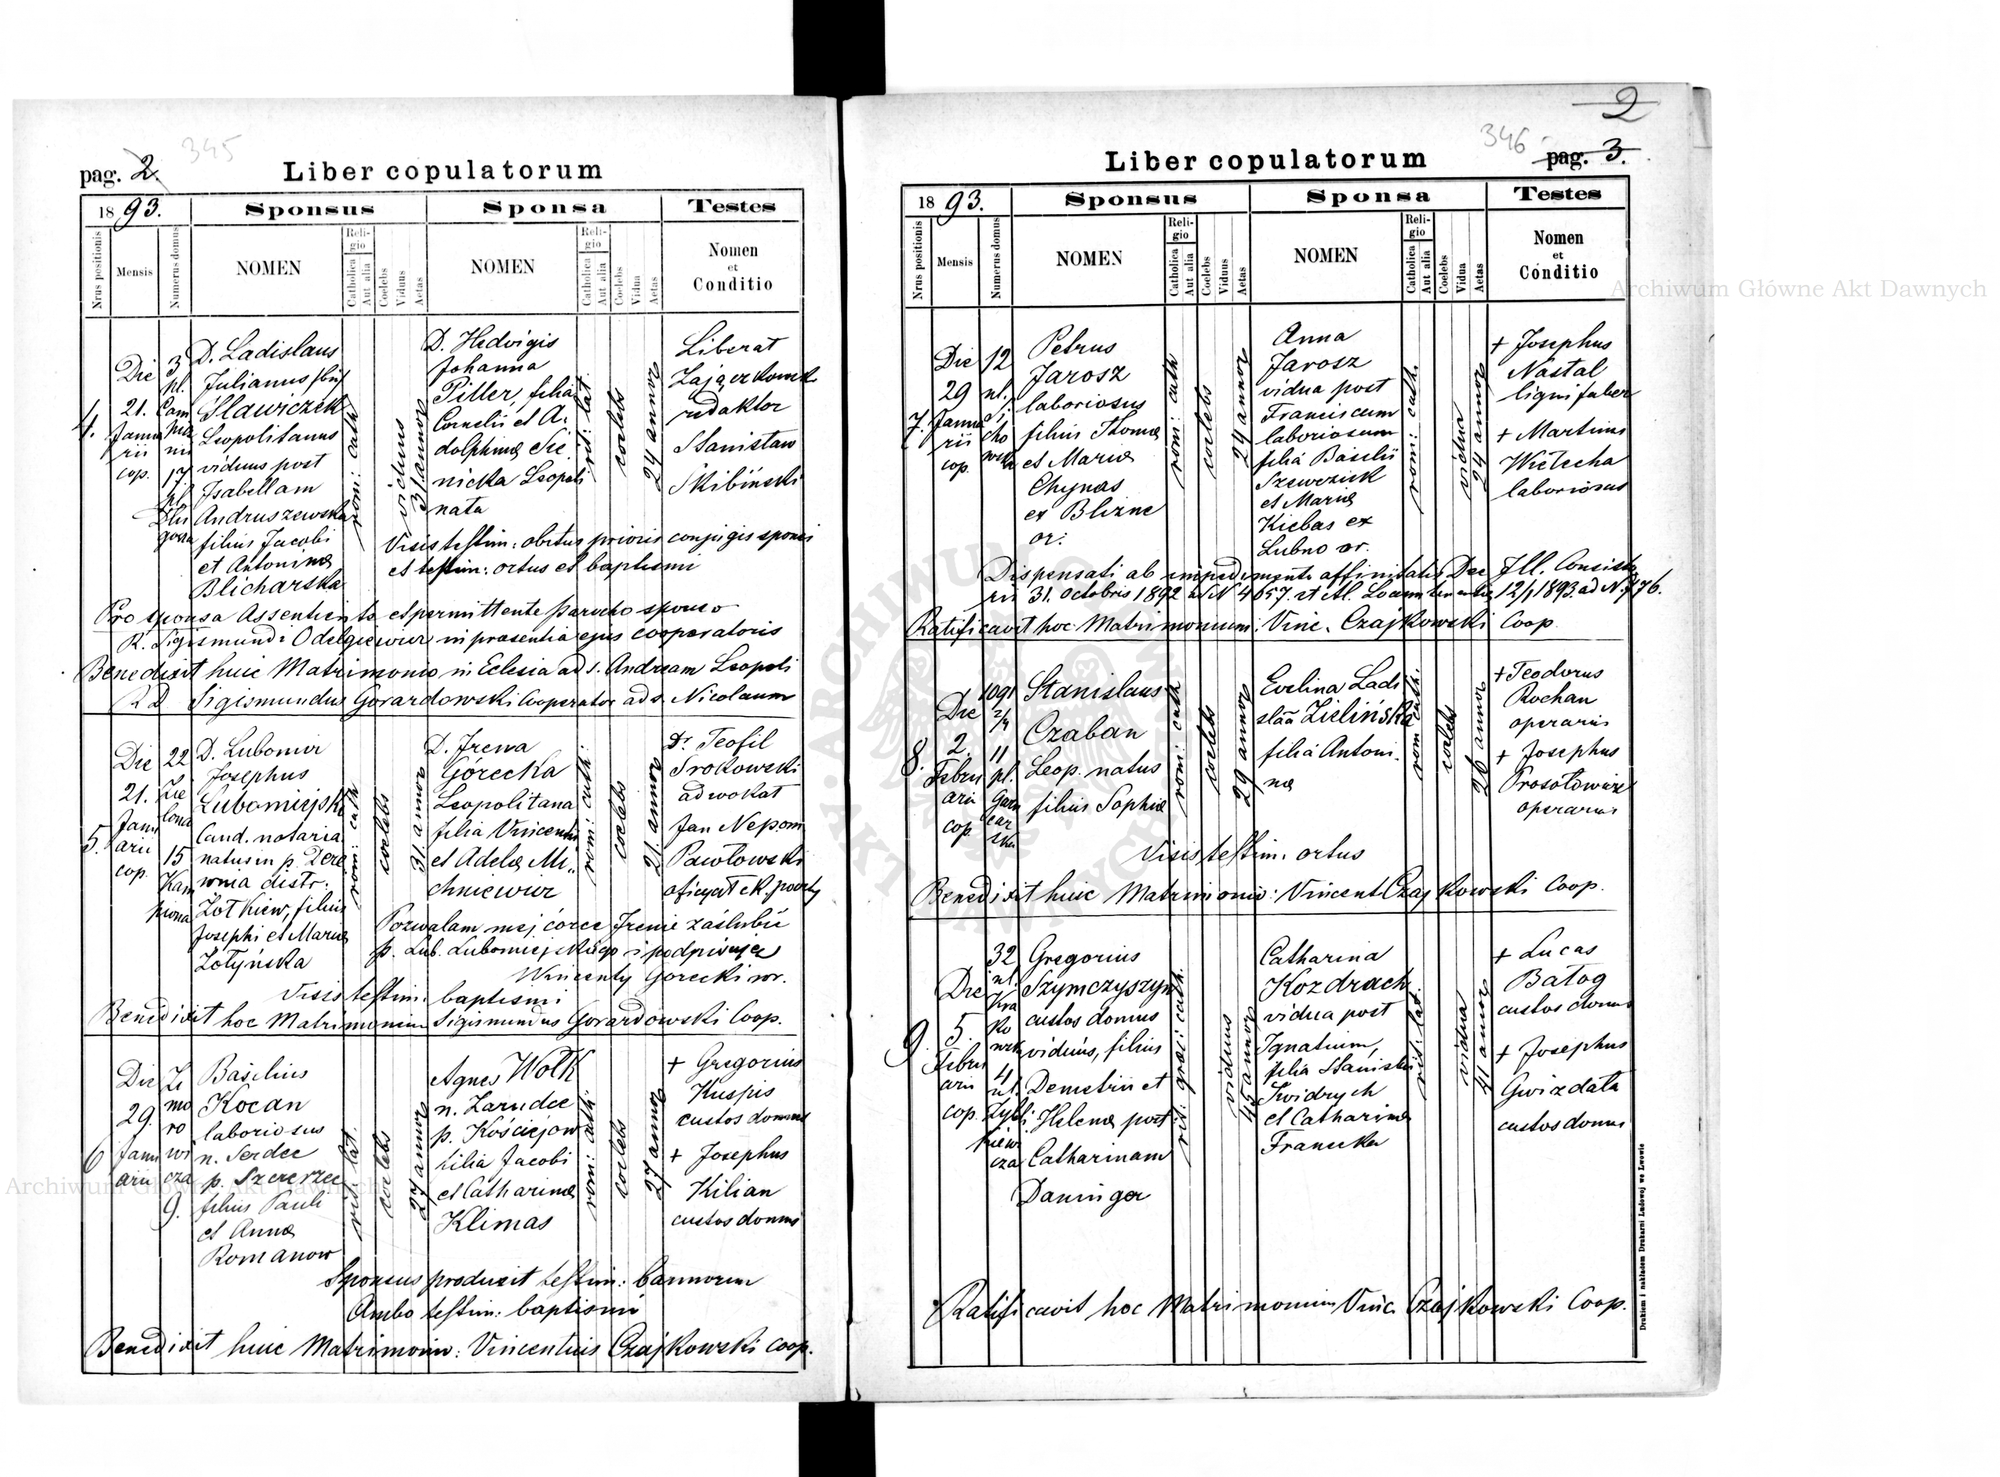 345
pag. 2.
Liber copulatorum
1893.
Sponsus
Sponsa
Testes
Nrus positionis
Mensis
Numerus domus
NOMEN
Religio
Catholica
Aut alia
Coelebs
Viduus
Aetas
NOMEN
Religio
Catholica
Aut alia
Coelebs
Vidua
Aetas
Nomen
et
Conditio
4.
Die
21.
Janua
rii
cop.
3
pl.
17
pl.
D. Ladislaus
Julianus
Sławiczek
Leopolitanus
viduus post
Isabellam
Andruszewska
filius Jacobi
et Antoninæ
Blicharska
rom: cath
viduus
31 annor
D. Hedvigis
Johanna
Piller, filia
Cornelii et A.
dolphinæ Sie
nicka Leopoli
nata
rit: lat.
coelebs
24 annor
Liberat
Zajączkowsk
redaktor
Stanisław
Skibiński
Visis testim: obitus prioris conjugis sponsi
et testim: ortus et baptismi
Pro sponsa Assentiento et permittente parocho sponso
R. Sigismundi Odelgiewicz in præsentia ejus cooperatoris
Benedixit huic Matrimonio in Eclesia ad s. Andream Leopoli
RD Sigismundus Gorardowski Cooperator ad s. Nicolaum
5.
Die
21.
Janu
arii
cop.
22
Zie
lona
15
Kam
D. Lubomir
Josephus
Lubomiejski
Cand. notaria
natus in p. Dere
wnia distr.
Żółkiew, filius
Josephi et Mariæ
Żołyńska
rom: cath
coelebs
31 annor
D. Irena
Górecka
Leopolitana
filia Vincentii
et Adelæ Mi-
chniewicz
rom: cath:
coelebs
21. annor
Dr Teofil
Srokowski
adwokat
Jan Nepom
Pawłowski
oficyał ck. poczty
Pozwalam mej córce Irenie zaślubić
p. Lub. Lubomiejskiego i podpisuję
Wincenty Górecki mr.
Visis testim: baptismi
Benedixit hoc Matrimonium Sigismundus Gorardowski Coop.
6
Die
29.
Janu
arii
Zi
mo
ro
wi
cza
9.
Basilius
Kocan
laboriosus
n. Serdce
p. Szczerzec
filius Pauli
et Annæ
Romanow
rit: lat.
coelebs
27 annor
Agnes Wołk
n. Zarudce
p. Kościejow
filia Jacobi
et Catharinæ
Klimas
rom: cath:
coelebs
27 annor
+ Gregorius
Kuspis
custos domus
+ Josephus
Kilian
custos domus
Sponsus produxit testim: bannorum
Ambo testim: baptismi
Benedixit huic Matrimonio: Vincentius Czajkowski coop.
2
346
pag. 3.
Liber copulatorum
1893.
Sponsus
Sponsa
Testes
Nrus positionis
Mensis
Numerus domus
NOMEN
Religio
Catholica
Aut alia
Coelebs
Viduus
Aetas
NOMEN
Religio
Catholica
Aut alia
Coelebs
Vidua
Aetas
Nomen
et
Conditio
7.
Die
29
Janua
rii
cop.
12
ul.
Petrus
Jarosz
laboriosus
filius Thomæ
et Mariæ
Chynas
ex Blizne
or:
rom: cath
coelebs
24 annor
Anna
Jarosz
vidua post
Franciscum
laboriosum
filia Basilii
Szewczik
et Mariæ
Kiebas ex
Lubno or.
rom: cath.
vidua
24 annor
+ Josephus
Nastal
ligni faber
+ Martinus
Wielecha
laboriosus
Dispensati ab impedimento affinitatis Dec. Ill. Consisto
rii 31. Octobris 1892 ad N 4657. et 12/1 1893. ad N. 776.
Ratificavit hoc Matrimonium: Vinc. Czajkowski Coop.
8.
Die
2.
Febru
arii
cop.
1091
2/4
11
pl.
Stanislaus
Czaban
Leop. natus
filius Sophiæ
rom: cath
coelebs
29 annor
Evelina Ladi
slaa Zielińska
filia Antoni.
næ
rom cath:
coelebs
26 annor
+ Teodorus
Rochan
operarius
+ Josephus
Prosołowicz
operarius
Visis testim: ortus
Benedixit huic Matrimonio: Vincent Czajkowski Coop.
9.
5.
Die
Febru
arii
cop.
32
ul.
Kra
ko
wska
4
ul.
Zybli
kiewi
cza
Gregorius
Szymczyszyn
custos domus
viduus, filius
Demetrii et
Helenæ post
Catharinam
Daninger
rit: græc: cath.
viduus
45 annor
Catharina
Kozdrach
vidua post
Ignatium,
filia Stanislai
Swidrych
et Catharinæ
Franczka
rit: lat.
vidua
41 annor
+ Lucas
Batog
custos domus
+ Josephus
Gwizdała
custos domus
Ratificavit hoc Matrimonium Vinc. Czajkowski Coop.
Drukiem i nakładem Drukarni Ludowej we Lwowie
Archiwum Główne Akt Dawnych
Archiwum Główne Akt Dawnych